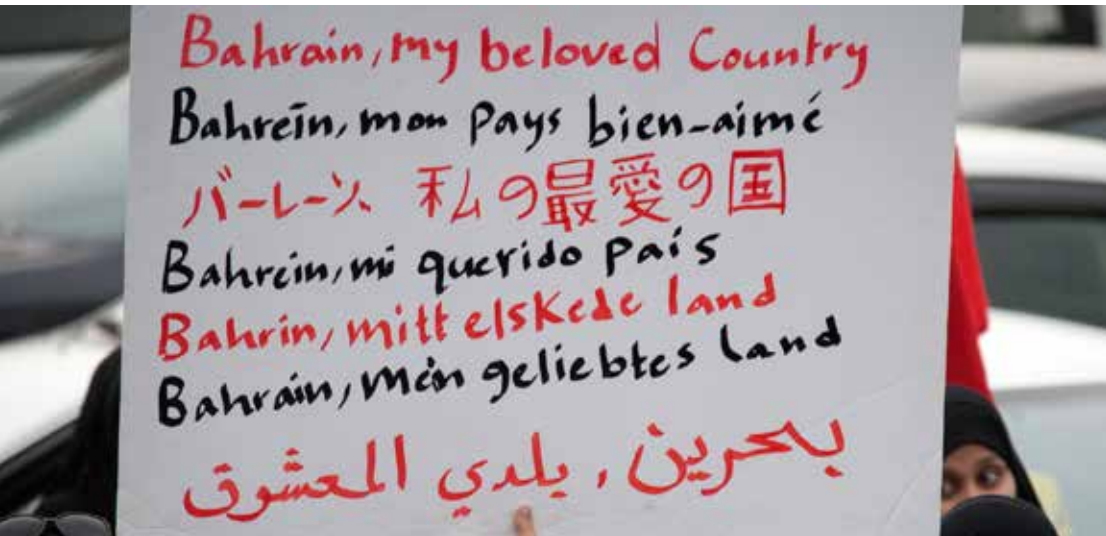 Bahrain, my beloved Country
Bahreïn, mon pays bien-aimé
バーレーン 私の最愛の国
Bahrein, mi querido país
Bahrin, mitt elskede land
Bahrain, Mein geliebtes Land
بحرين، بلدي المعشوق